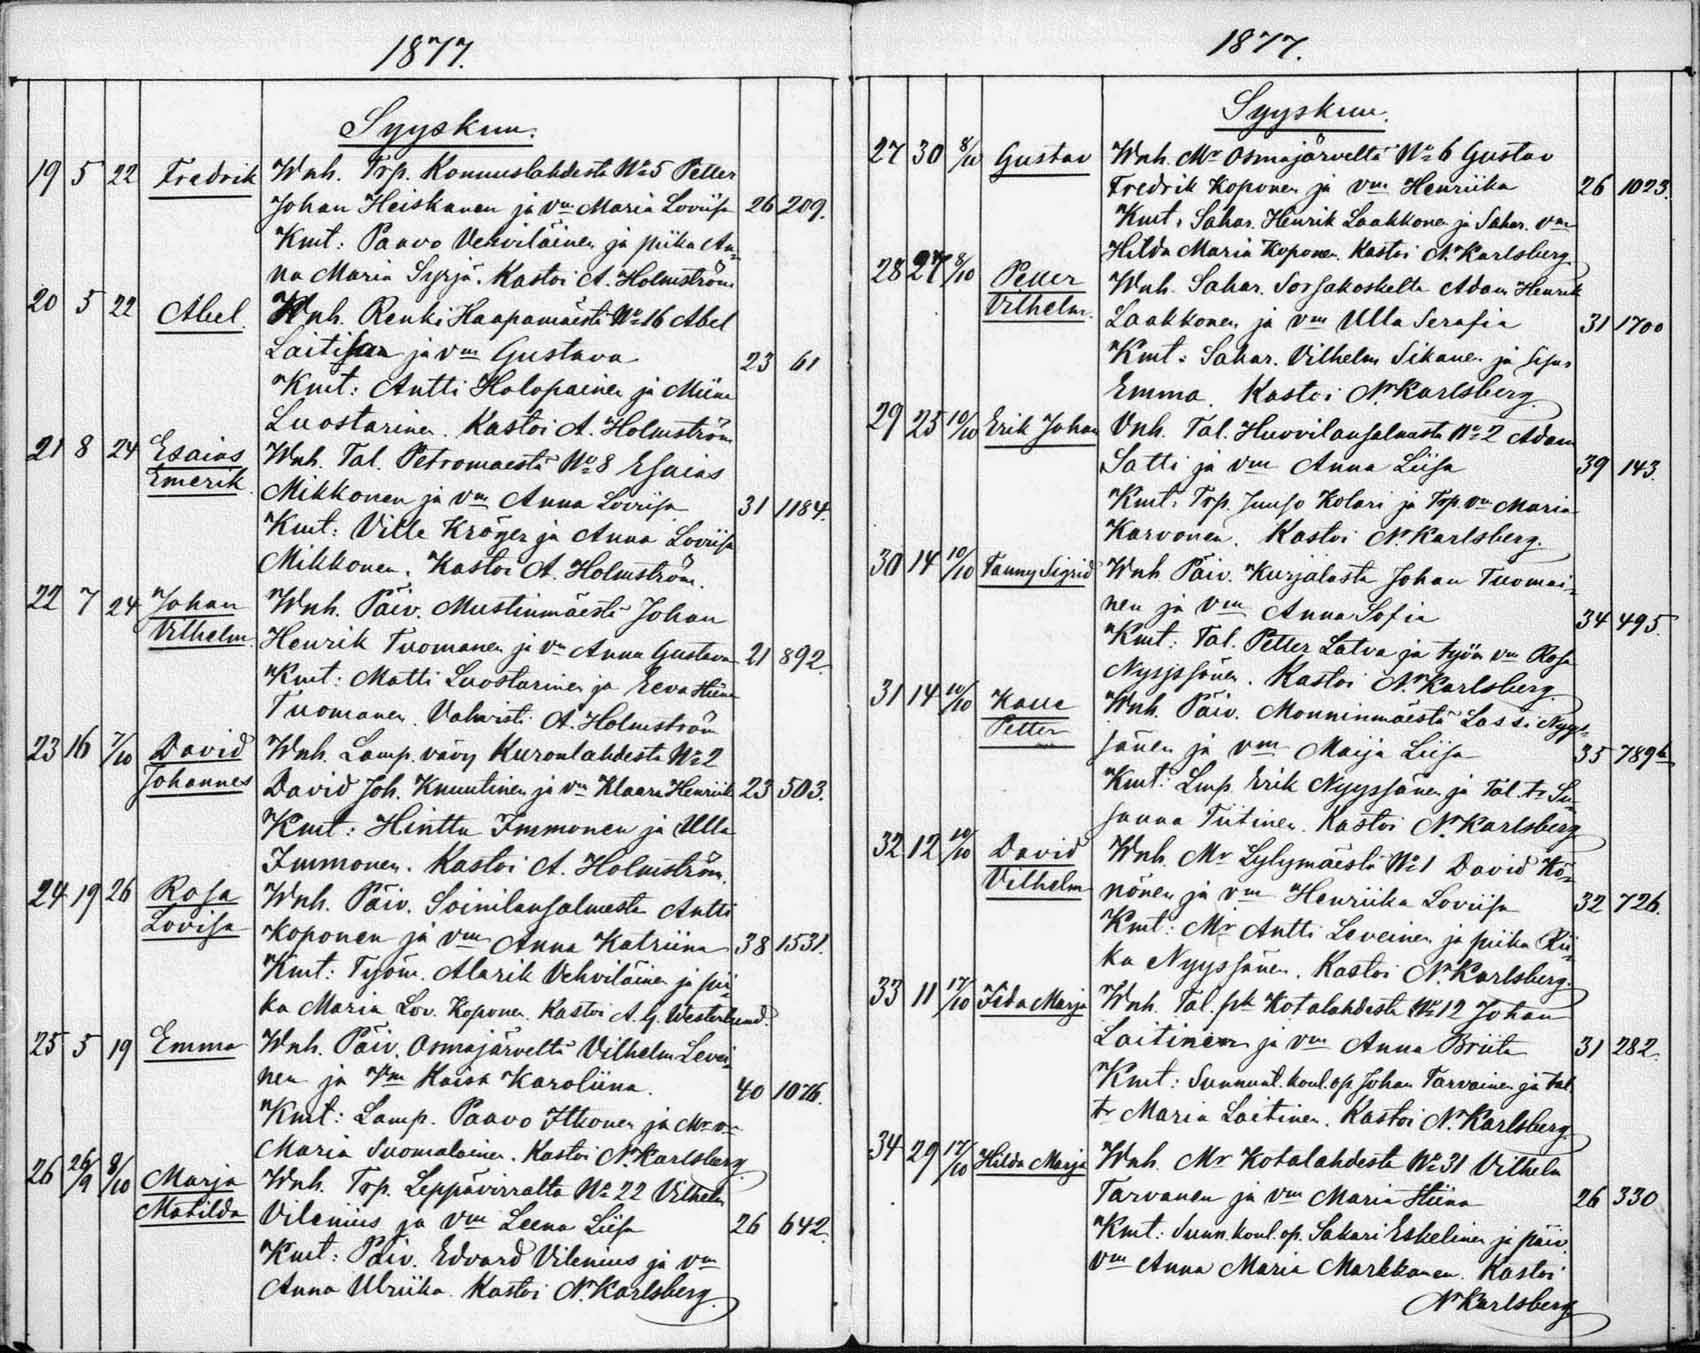 1877.
Syyskuu.
19 5 22 Fredrik Wnh. Trp. Konnuslahdesta No 5 Petter
Johan Heiskanen ja vm Maria Loviisa 26 209.
Kmt: Paavo Vehviläinen ja piika An-
na Maria Syrjä. Kastoi A. Holmström
20 5 22 Abel Wnh. Renki Haapamäestä No 16 Abel
Laitinen ja vm Gustava 23 61
Kmt: Antti Holopainen ja Miina
Luostarinen. Kastoi A. Holmström
21 8 24 Esaias Wnh. Tal. Petromaestä No 8 Esaias
Emerik Mikkonen ja vm Anna Loviisa 31 1184.
Kmt: Ville Kröger ja Anna Loviisa
Mikkonen. Kastoi A. Holmström.
22 7 24 Johan Wnh. Päiv. Mustinmäestä Johan
Vilhelm Henrik Tuomanen ja vm Anna Gustava 21 892.
Kmt: Matti Luostarinen ja Eeva Stiina
Tuomanen. Vahvisti A. Holmström
23 16 7/10 David Wnh. Lamp. vävy Kuronlahdesta No 2
Johannes David Joh. Knuutinen ja vm Klaara Henriik 23 503.
Kmt: Hinttu Immonen ja Ulla
Immonen. Kastoi A. Holmström.
24 19 26 Rosa Wnh. Päiv. Soinilansalmesta Antti
Lovisa Koponen ja vm Anna Katriina 38 1531.
Kmt: Tyom. Alarik Vehviläinen ja pii-
ka Maria Lov. Koponen. Kastoi A. G. Westerlund.
25 5 19 Emma Wnh. Päiv. Osmajärveltä Vilhelm Levei-
nen ja vm Kaisa Karoliina. 40 1076.
Kmt: Lamp. Paavo Itkonen ja Mr vm
Maria Suomalainen. Kastoi N. Karlsberg
26 26/9 8/10 Marja Wnh. Trp. Leppävirralta No 22 Vilhelm
Matilda Vilenius ja vm Leena Liisa 26 642.
Kmt: Päiv. Edvard Vilenius ja vm
Anna Ulriika. Kastoi N. Karlsberg.
1877.
Syyskuu.
27 30 8/10 Gustav Wnh. Mr Osmajärveltä No 6 Gustav
Fredrik Koponen ja vm Henriika 26 1023.
Kmt. Sahar. Henrik Laakkonen ja Sahar. vm
Hilda Maria Koponen. Kastoi N. Karlsberg.
28 27 8/10 Petter Wnh. Sahar. Sorsakoskelta Adam Henrik
Vilhelm. Laakkonen ja vm Ulla Serafia 31 1700
Kmt: Sahar. Vilhelm Sikanen ja
Emma. Kastoi N. Karlsberg
29 25 10/10 Erik Johan Vnh. Tal. Huovilansalmesta No 2 Adam
Satti ja vm Anna Liisa 39 143.
Kmt. Trp. Juuso Kolari ja Trp. vm Maria
Karvonen. Kastoi N. Karlsberg.
30 14 10/10 Fanny Sigrid Wnh Päiv. Kurjalasta Johan Tuomai-
nen ja vm Anna Sofia 34 495.
Kmt: Tal. Petter Latva ja työm vm Rosa
Nyyssönen. Kastoi N. Karlsberg.
31 14 10/10 Kalle Wnh. Päiv. Monninmäestä Lassi Nyys-
Petter sönen ja vm Maija Liisa 35 789b
Kmt: Lmp. Erik Nyyssönen ja Tal. tr Su-
sanna Tiitinen. Kastoi N. Karlsberg
32 12 10/10 David Wnh. Mr Lylymäestä No 1 David Kö-
Vilhelm nönen ja vm Henriika Loviisa 32 726.
Kmt: Mr Antti Leveinen ja piika Rii-
ka Nyyssönen. Kastoi N. Karlsberg.
33 11 17/10 Fida Marja Wnh. Tal. pk Kotalahdesta No 12 Johan
Laitinen ja vm Anna Briita 31 282.
Kmt: Sunnunt. koul. op. Johan Tarvainen ja tal.
tr Maria Laitinen. Kastoi N. Karlsberg.
34 29 17/10 Hilda Marja Wnh. Mr Kotalahdesta No 31 Vilhelm
Tarvanen ja vm Maria Stiina 26 330
Kmt: Sunn. koul. op. Sakari Eskelinen ja päiv.
vm Anna Maria Markkanen. Kastoi
N. Karlsberg